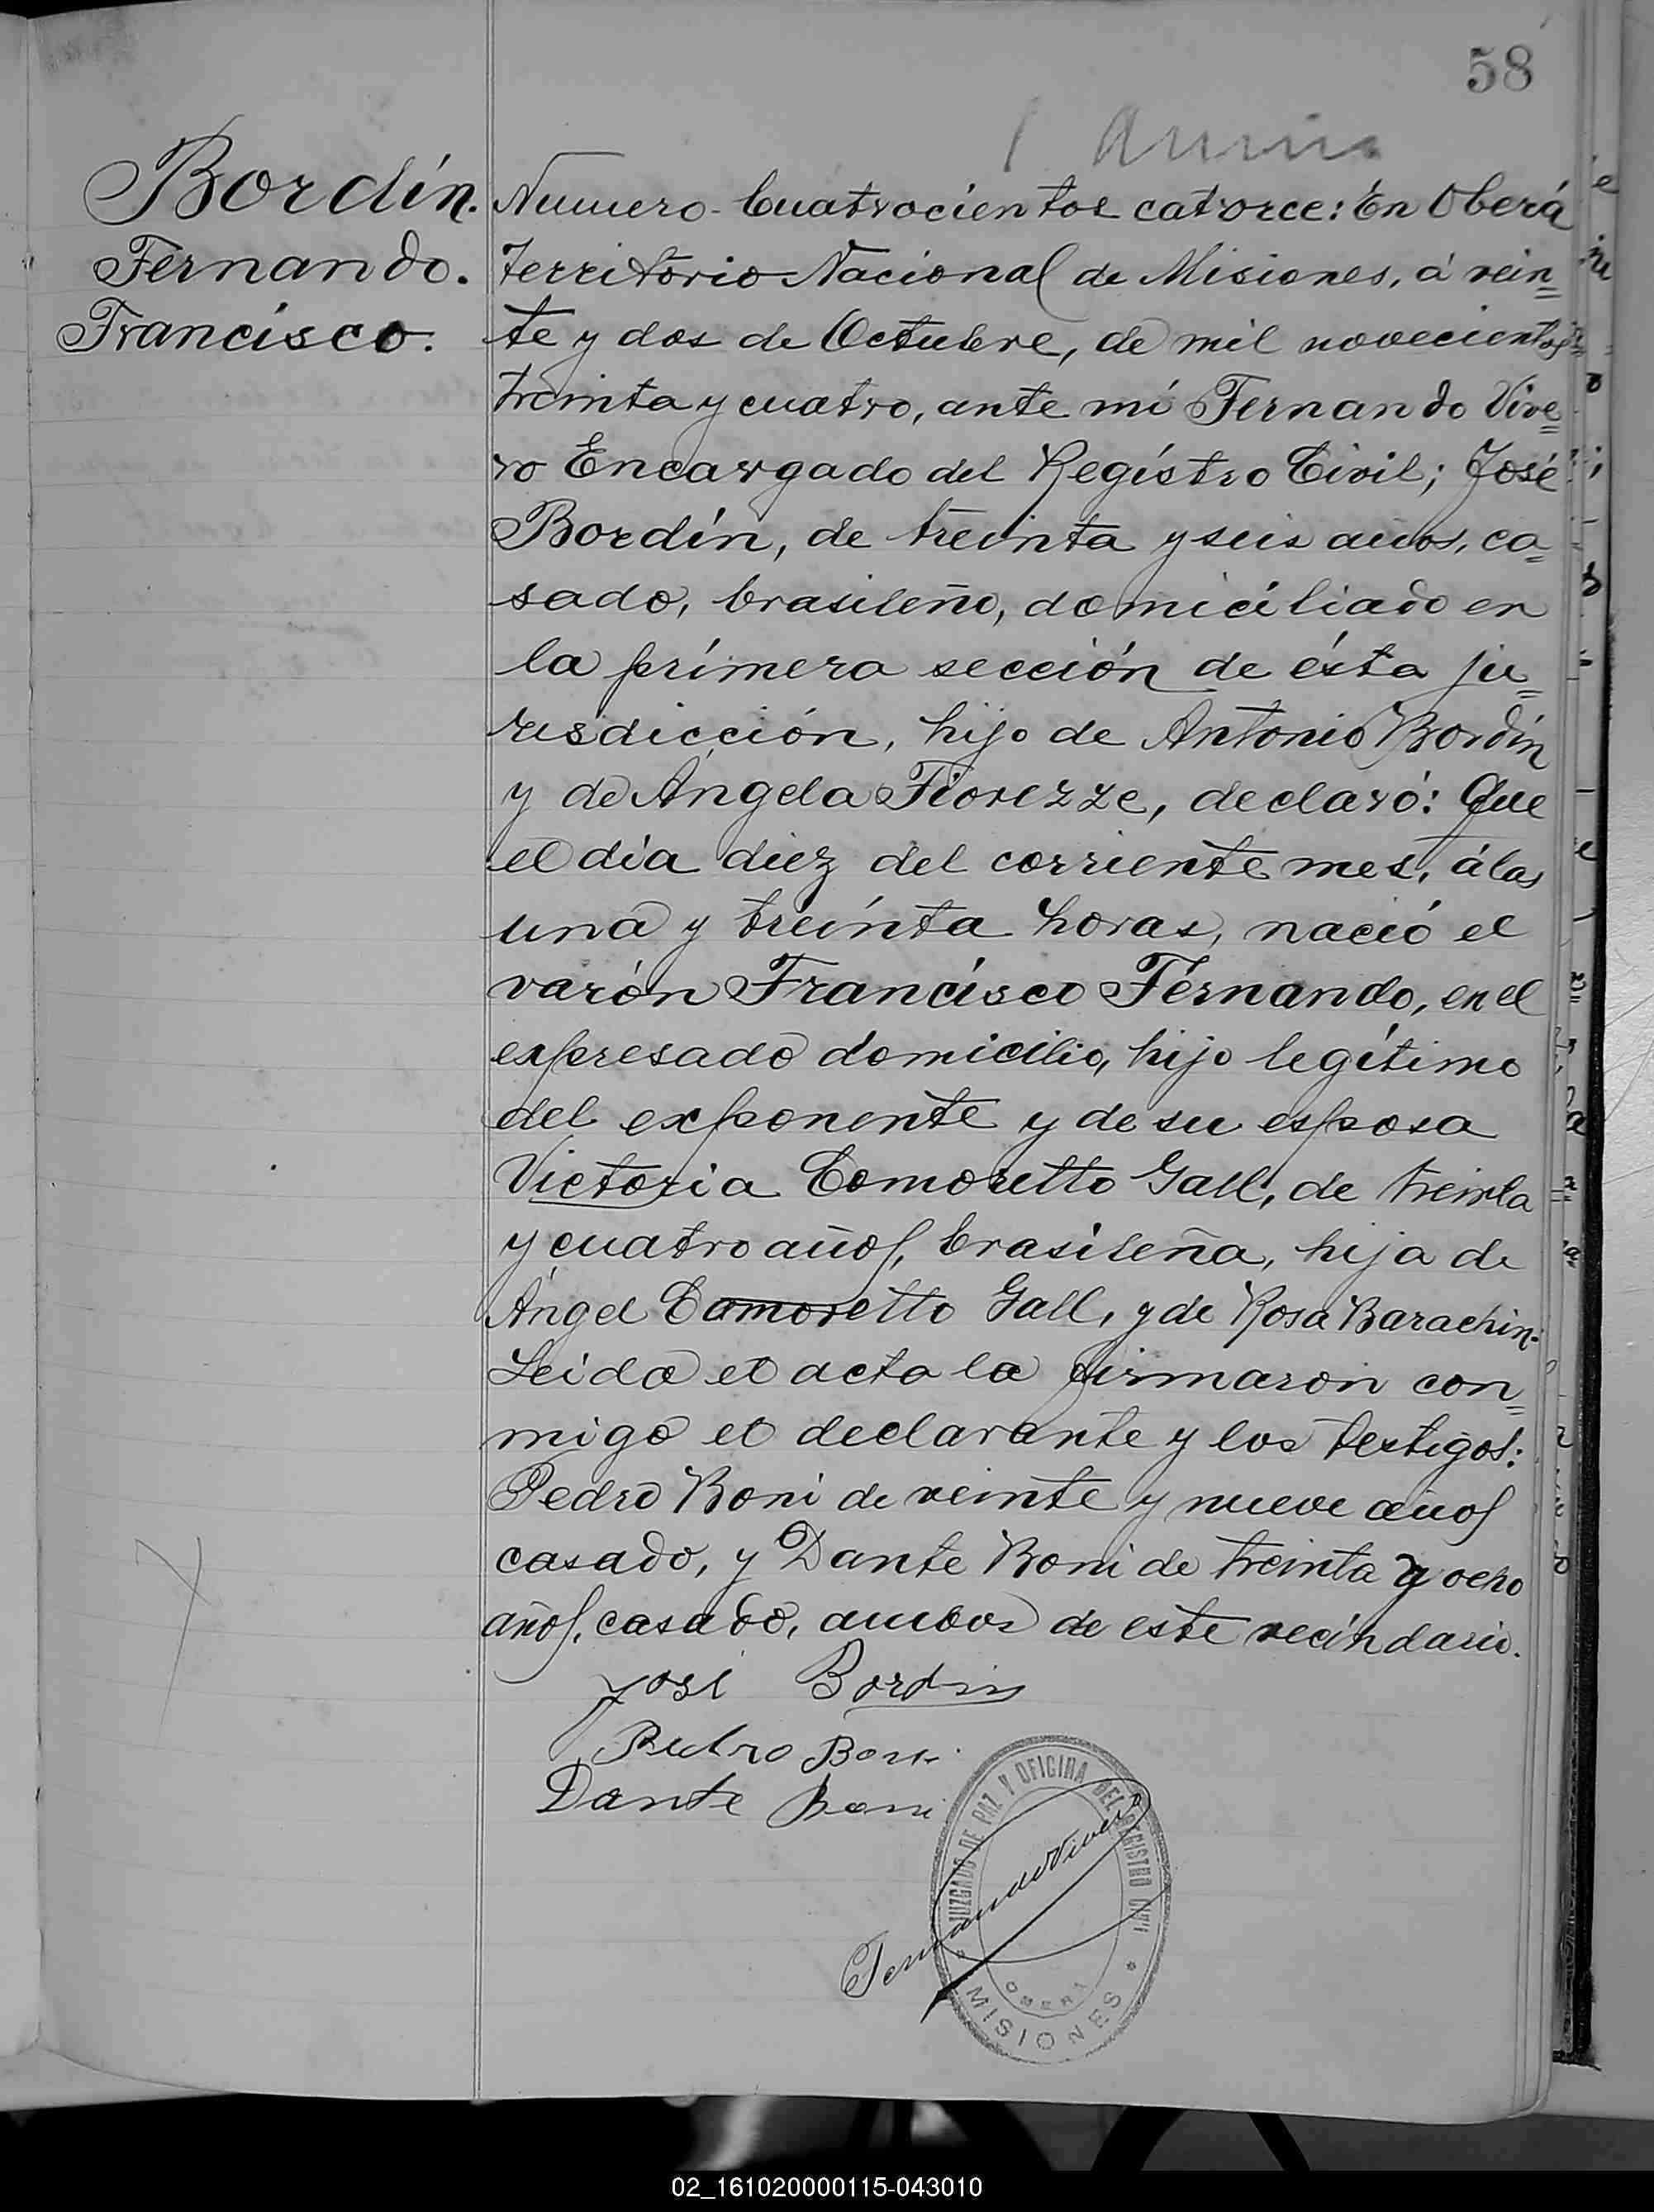 58
Bordín.
Fernando.
Francisco.
Numero Cuatrocientos catorce: En Oberá
Territorio Nacional de Misiones, á vein=
te y dos de Octubre, de mil novecientos
treinta y cuatro, ante mí Fernando Vive=
ro Encargado del Regístro Civil; José
Bordín, de treinta y seis años, ca=
sado, brasileño, domiciliado en
la primera sección de ésta ju=
risdicción, hijo de Antonio Bordín
y de Ángela Fiorezze, declaró: Que
el día diez del corriente mes, á las
una y treinta horas, nació el
varón Francisco Fernando, en el
expresado domicilio, hijo legítimo
del exponente y de su esposa
Victoria Comoretto Gall, de treinta
y cuatro años, brasileña, hija de
Ángel Comoretto Gall, y de Rosa Barachin.
Leida el acta la firmaron con=
migo el declarante y los testigos:
Pedro Boni de veinte y nueve años
casado, y Dante Boni de treinta y ocho
años, casado, ambos de este vecindario.
José Bordin
Pedro Boni
Dante Boni
Fernando Vivero
JUZGADO DE PAZ Y OFICINA DEL REGISTRO CIVIL
OBERA
* MISIONES *
02_161020000115-043010